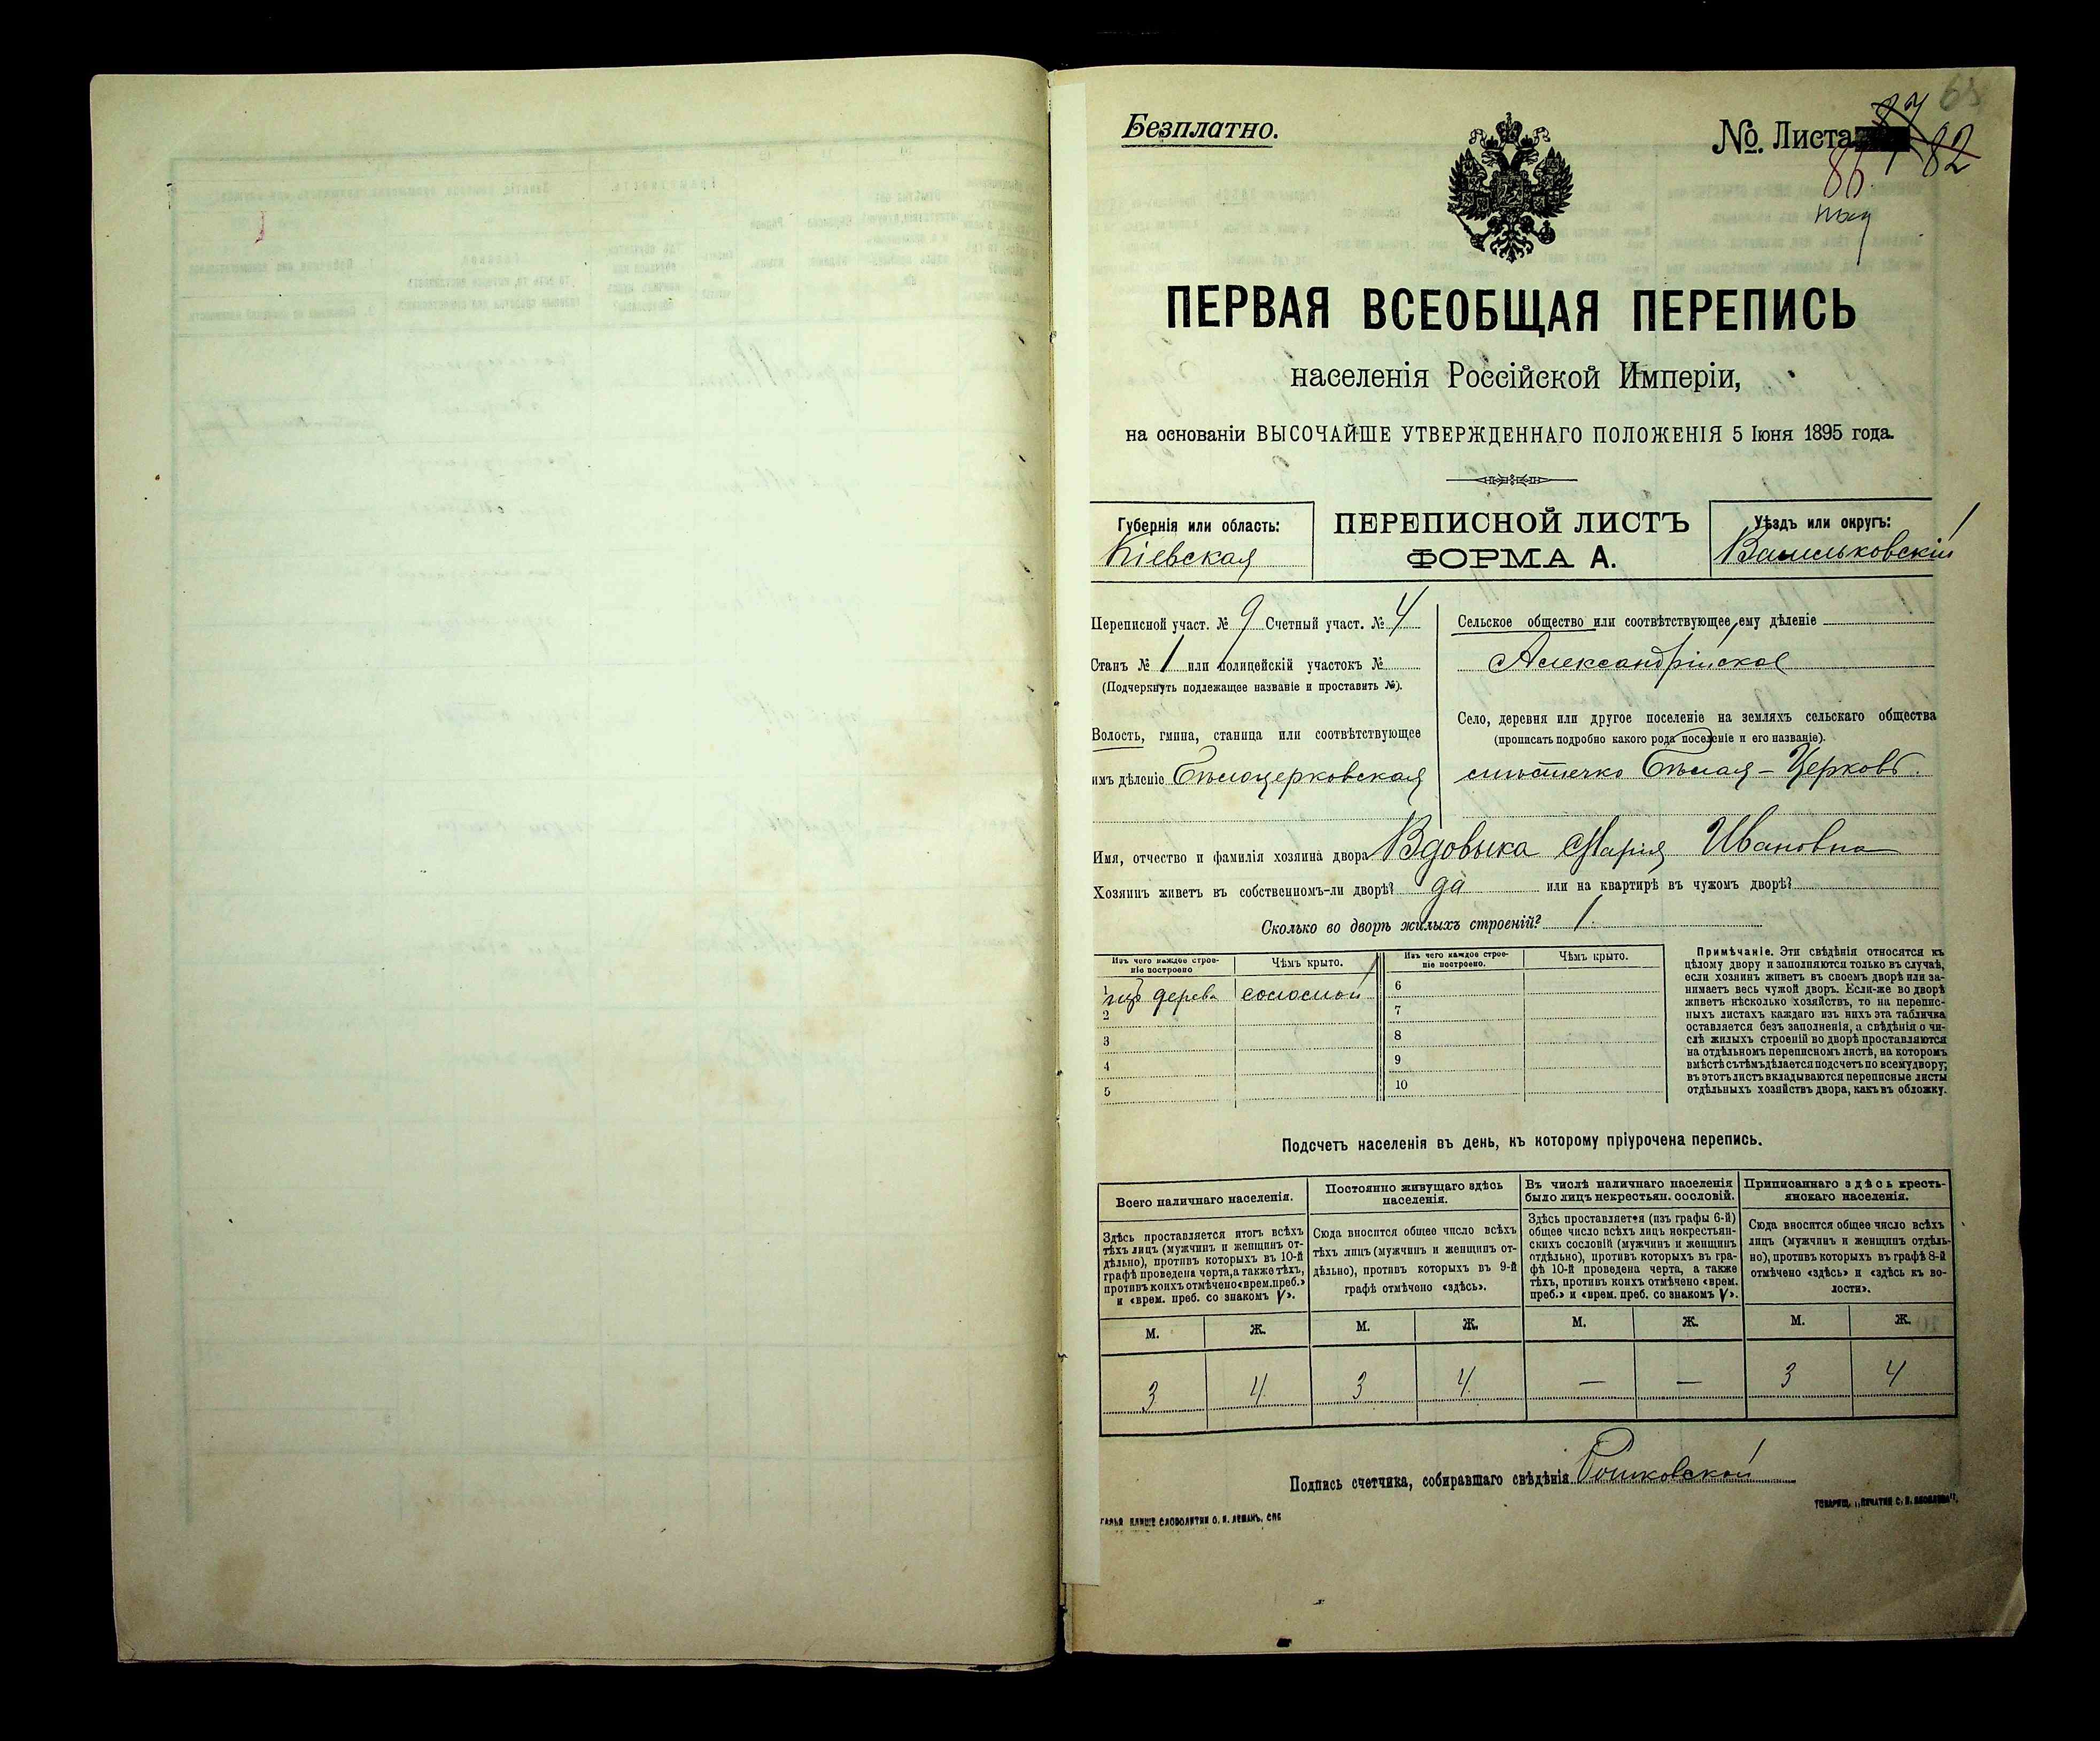 Безплатно.
№. Листа
82
86
ПЕРВАЯ ВСЕОБЩАЯ ПЕРЕПИСЬ
населенія Россійской Имперіи,
на основаніи ВЫСОЧАЙШЕ УТВЕРЖДЕННАГО ПОЛОЖЕНІЯ 5 Іюня 1895 года.
Губернія или область:
Кіевская
ПЕРЕПИСНОЙ ЛИСТЪ
ФОРМА А.
Уѣздъ или округъ:
Васильковскій
Переписной участ. № 9 Счетный участ. № 4
Станъ № 1 или полицейскій участокъ №
(Подчеркнуть подлежащее названіе и проставить №).
Волость, гмина, станица или соотвѣтствующее
имъ дѣленіе Бѣлоцерковская
Сельское общество или соотвѣтствующее ему дѣленіе
Александрійское
Село, деревня или другое поселеніе на земляхъ сельскаго общества
(прописать подробно какого рода поселеніе и его названіе).
мѣстечко Бѣлая-Церковь.
Имя, отчество и фамилія хозяина двора Вдовыка Марія Ивановна
Хозяинъ живетъ въ собственномъ-ли дворѣ? да или на квартирѣ въ чужомъ дворѣ?
Сколько во дворѣ жилыхъ строеній? 1.
Изъ чего каждое строе-
ніе построено
Чѣмъ крыто.
Изъ чего каждое строе-
ніе построено.
Чѣмъ крыто.
1 изъ дерева соломой
2
3
4
5
6
7
8
9
10
Примѣчаніе. Эти свѣдѣнія относятся къ
цѣлому двору и заполняются только въ случаѣ,
если хозяинъ живетъ въ своемъ дворѣ или за-
нимаетъ весь чужой дворъ. Если-же во дворѣ
живетъ нѣсколько хозяйствъ, то на перепис-
ныхъ листахъ каждаго изъ нихъ эта табличка
оставляется безъ заполненія, а свѣдѣнія о чи-
слѣ жилыхъ строеній во дворѣ проставляются
на отдѣльномъ переписномъ листѣ, на которомъ
вмѣстѣ съ тѣмъ дѣлается подсчетъ по всему двору;
въ этотъ листъ вкладываются переписные листы
отдѣльныхъ хозяйствъ двора, какъ въ обложку.
Подсчетъ населенія въ день, къ которому пріурочена перепись.
Всего наличнаго населенія.
Здѣсь проставляется итогъ всѣхъ
тѣхъ лицъ (мужчинъ и женщинъ от-
дѣльно), противъ которыхъ въ 10-й
графѣ проведена черта, а также тѣхъ,
противъ коихъ отмѣчено «врем. преб.»
и «врем. преб. со знакомъ V».
Постоянно живущаго здѣсь
населенія.
Сюда вносится общее число всѣхъ
тѣхъ лицъ (мужчинъ и женщинъ от-
дѣльно), противъ которыхъ въ 9-й
графѣ отмѣчено «здѣсь».
Въ числѣ наличнаго населенія
было лицъ некрестьян. сословій.
Здѣсь проставляется (изъ графы 6-й)
общее число всѣхъ лицъ некрестьян-
скихъ сословій (мужчинъ и женщинъ
отдѣльно), противъ которыхъ въ гра-
фѣ 10-й проведена черта, а также
тѣхъ, противъ коихъ отмѣчено «врем.
преб.» и «врем. преб. со знакомъ V».
Приписаннаго здѣсь кресть-
янскаго населенія.
Сюда вносится общее число всѣхъ
лицъ (мужчинъ и женщинъ отдѣль-
но), противъ которыхъ въ графѣ 8-й
отмѣчено «здѣсь» и «здѣсь къ во-
лости».
М. Ж. М. Ж. М. Ж. М. Ж.
3 4 3 4 — — 3 4
Подпись счетчика, собиравшаго свѣдѣнія
СЛОВОЛИТНИ О. И. ЛЕМАНЪ, СПБ
ТОВАРИЩ. „ПЕЧАТНИ С. П. ЯКОВЛЕВА“.